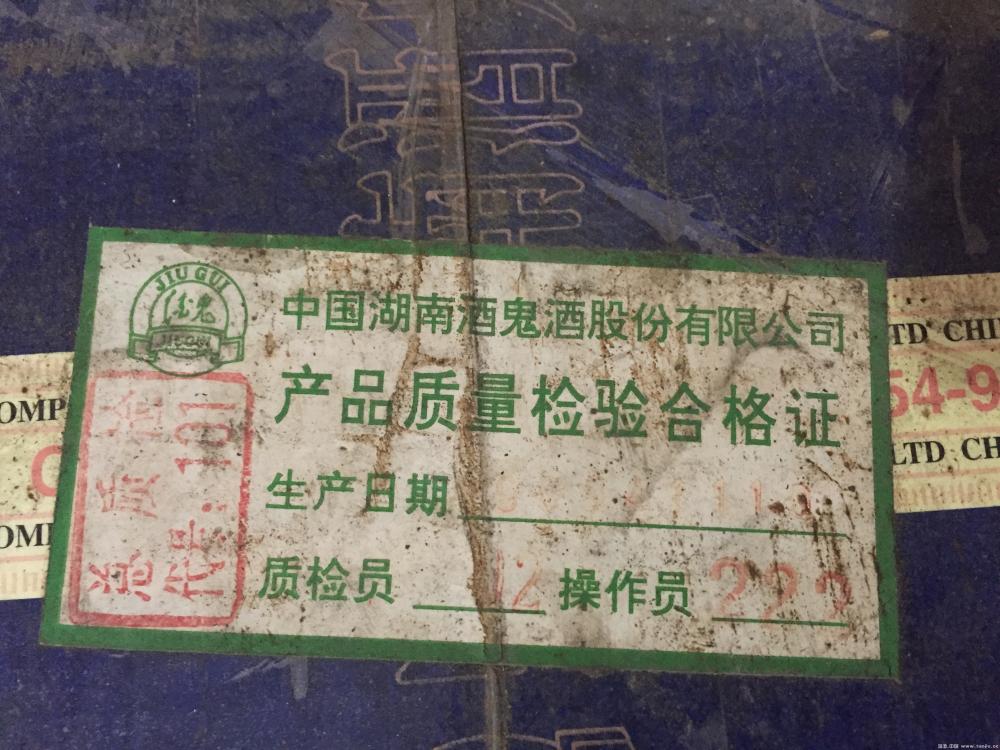 JIU GUI
中国湖南酒鬼酒股份有限公司
产品质量检验合格证
生产日期
质检员 12 操作员 222
总质检
代号:101
OMP
OMP
LTD CHI
54-9
LTD CH